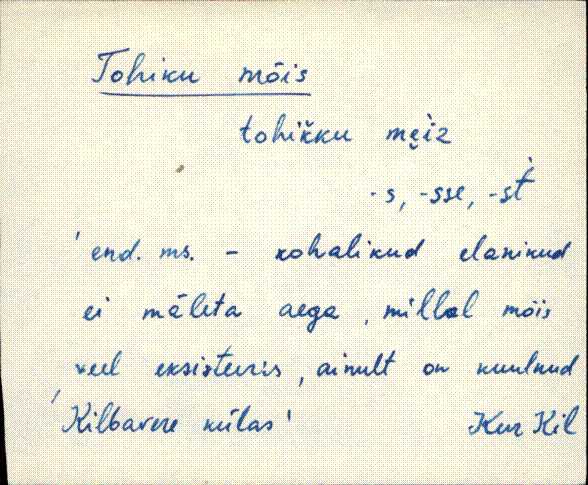 Tohiku mõis
tohik̆ku mẹi̇z
-s, -sse, -st̀
' end. ms. – kohalikud elanikud
ei mäleta aega, millal mõis
veel eksisteeris, ainult on kuulnud
'Kilbavere külas' Kur Kil